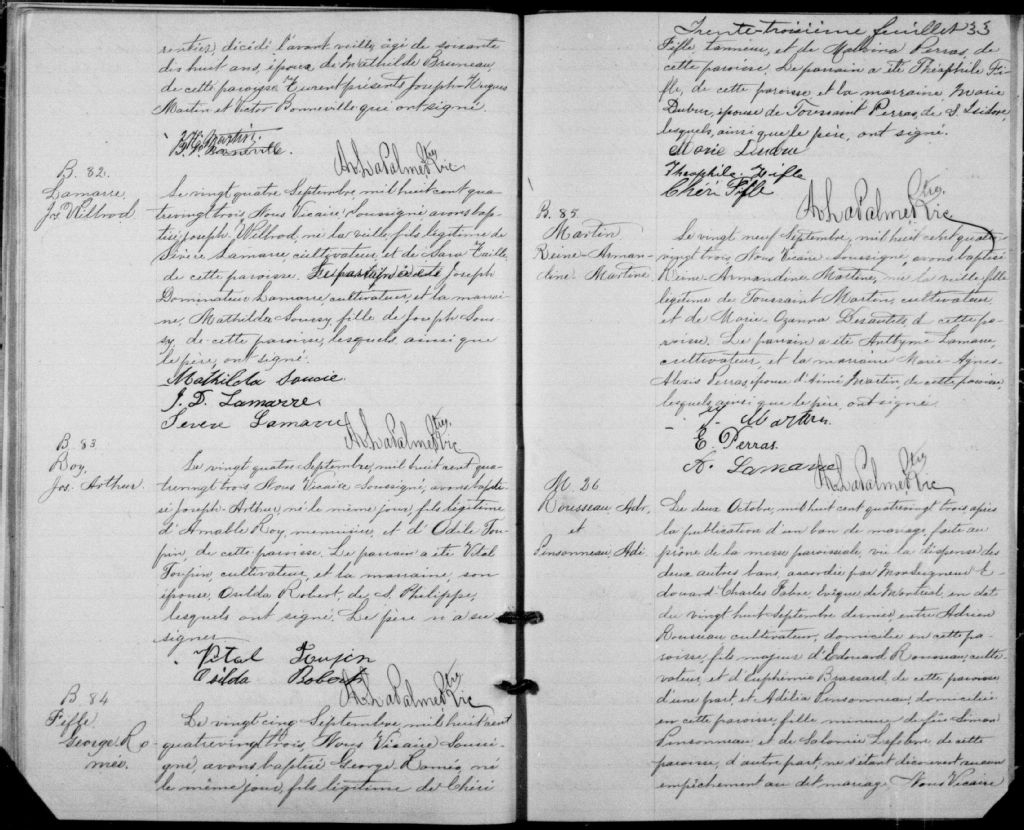 rentier, décédé l'avant veille, âgé de soixante
dix huit ans, époux de Mathilde Bruneau
de cette paroisse. Furent présents Joseph Hugues
Martin et Victor Bonneville qui ont signé.
J. H. Martin
V. Bonneville.
A. LaPalme Ptre Vic
B. 82.
Lamarre,
Js Wilbrod.
Le vingt quatre Septembre, mil huit cent qua-
trevingt trois, Nous Vicaire Soussigné avons bap-
tisé Joseph Wilbrod, né la veille, fils légitime de
Sévère Lamarre cultivateur, et de Sara Faille,
de cette paroisse. Le parrain a été Joseph
Dominateur Lamarre, cultivateur, et la marrai-
ne, Mathilda Soussy, fille de Joseph Sous-
sy, de cette paroisse, lesquels, ainsi que
le père, ont signé.
Mathilda Soucie
J. D. Lamarre
Sévère Lamarre
A. LaPalme Ptre Vic
B. 83
Roy,
Jos. Arthur.
Le vingt quatre Septembre, mil huit cent qua-
trevingt trois Nous Vicaire Soussigné, avons bapti-
sé Joseph-Arthur, né le même jour, fils légitime
d'Amable Roy, menuisier, et d'Odile Tou-
pin, de cette paroisse. Le parrain a été Vital
Toupin, cultivateur, et la marraine, son
épouse, Osilda Robert, de S. Philippe,
lesquels ont signé. Le père n'a su
signer
Vital Toupin
Osilda Robert
A. LaPalme Ptre Vic
B. 84
Fifle,
George Ro-
méo.
Le vingt cinq Septembre, mil huit cent
quatrevingt trois, Nous Vicaire Soussi-
gné, avons baptisé George-Roméo, né
le même jour, fils légitime de Chéri
Trente-troisième feuillet 33
Fifle, tanneur, et de Malvina Perras, de
cette paroisse. Le parrain a été Théophile Fi-
fle, de cette paroisse et la marraine, Marie
Dubuc, épouse de Toussaint Perras, de S. Isidore,
lesquels, ainsi que le père, ont signé.
Marie Dubuc
Théophile Fifle
Chéri Fifle
A. LaPalme Ptre Vic
B. 85
Martin
Reine-Arman-
dine-Martine
Le vingt neuf Septembre, mil huit cent quatre-
vingt trois Nous Vicaire soussigné, avons baptisé
Reine-Armandine Martine, née la veille fille
légitime de Toussaint Martin, cultivateur,
et de Marie-Ozanna Desautels de cette pa-
roisse. Le parrain a été Anthyme Lamarre,
cultivateur, et la marraine Marie-Agnes-
Alexis Perras, épouse d'Aimé Martin, de cette paroisse,
lesquels, ainsi que le père, ont signé.
T. Martin
E. Perras
A. Lamarre
A. LaPalme Ptre Vic
M. 26
Rousseau, Adr.
et
Pinsonneau, Adé.
Le deux Octobre, mil huit cent quatrevingt trois, après
la publication d'un ban de mariage, faite au
prône de la messe paroissiale, vu la dispense des
deux autres bans, accordée par Monseigneur E-
douard Charles Fabre, évêque de Montréal, en date
du vingt huit Septembre dernier, entre Adrien
Rousseau cultivateur, domicilié en cette pa-
roisse, fils majeur d'Edouard Rousseau, culti-
vateur, et d'Euphémie Brassard, de cette paroisse
d'une part, et Adélia Pinsonneau, domiciliée
en cette paroisse, fille mineure de feu Simon
Pinsonneau, et de Salomée Lefebvre, de cette
paroisse, d'autre part, ne s'étant découvert aucun
empêchement au dit mariage Nous Vicaire